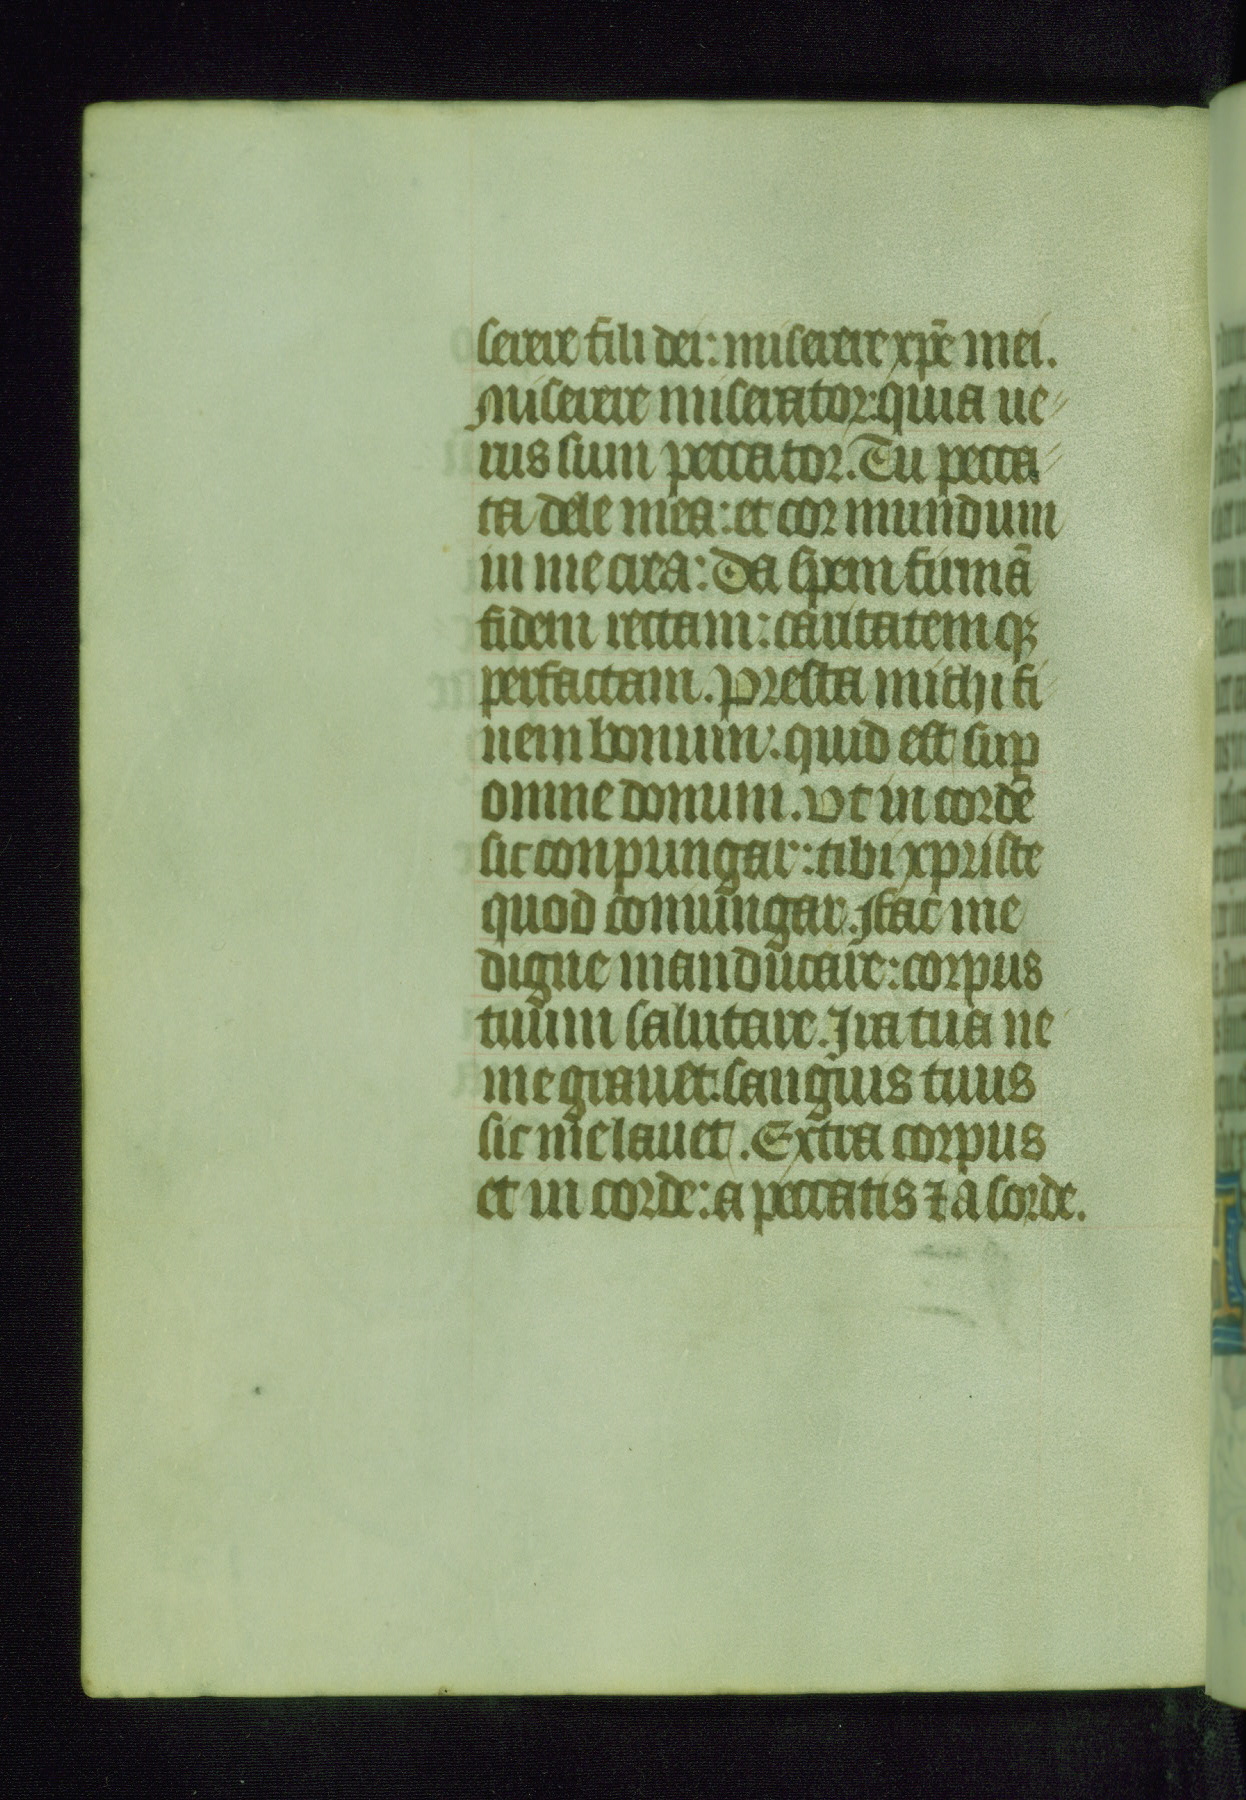 serere fili dei: miserere xp̄e mei.
Miserere miserator: quia ue
rus sum peccator. Tu pecca
ta dele mea: et cor mundum
in me crea: Da spem firmā
fidem rectam: caritatem qꝫ
perfactam. Presta michi fi
nem bonum: quid est suꝑ
omne donum. Vt in cordē
sic conpungar: tibi xpriste
quod coniungar. Ifac me
digne manducare: corpus
tuum salutare. Ira tua ne
me grauet: sanguis tuus
sic me lauet. Extra corpus
et in corde: a peccatis ⁊ a sorde.